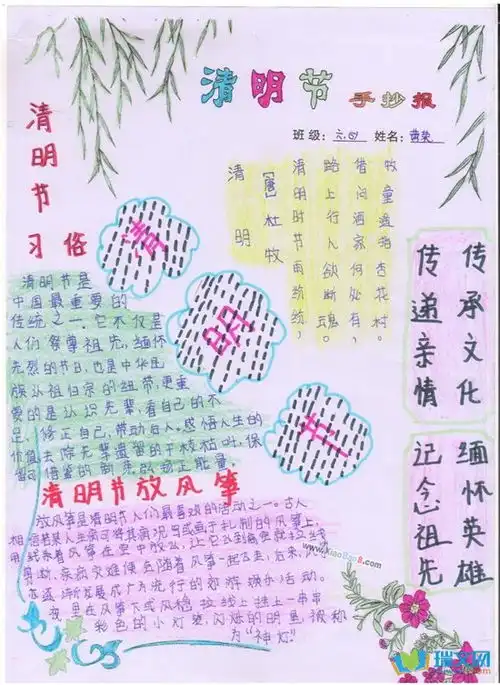 清明节
手抄报
班级：六.四 姓名：黄荣
清明节习俗
清明
【唐】杜牧
清明时节雨纷纷，
路上行人欲断魂。
借问酒家何处有，
牧童遥指杏花村。
清
明
节
传承文化
传递亲情
缅怀英雄
记念祖先
清明节是
中国最重要的
传统之一它不仅是
人们祭尊祖先，缅怀
先烈的节日，也是中华民
族认祖归宗的纽带，更重
要的是认识先辈，看自己的不
足，修正自己，带动后人，感悟人生的
价值去除先辈遗留的
清明节放风筝
放风筝是清明节人们最喜欢的活动之一。古人
线系着风筝在空中放
剪断，疾病灾难便会随着风筝一起飞走，后来，
发展成广为流行的郊游娱乐活动。
夜里在风筝下或风稳拉线上挂上一串串
彩色的小灯笼闪烁的明星被称
为“神灯”
www.XiaoBao8.com
瑞文网